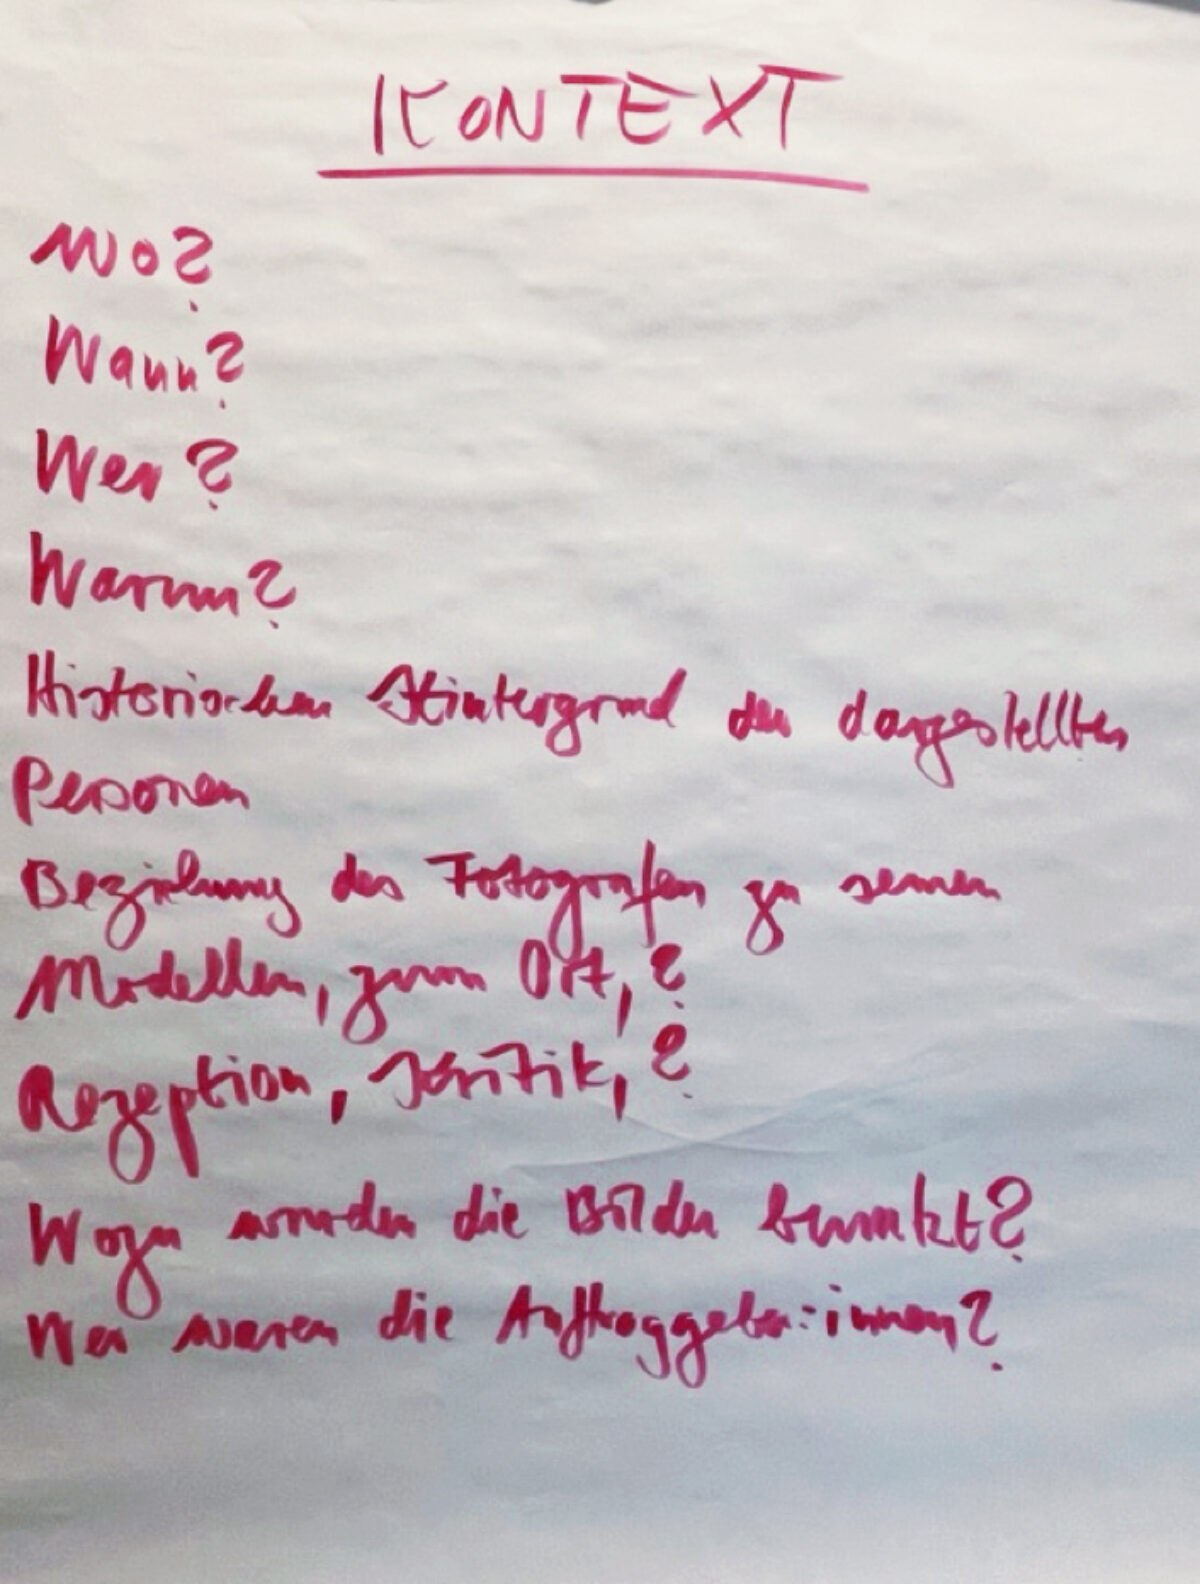 KONTEXT
Wo?
Wann?
Wer?
Warum?
Historischer Hintergrund der dargestellten
Personen
Beziehung des Fotografen zu seinen
Modellen, zum Ort, ?
Rezeption, Kritik, ?
Wozu wurden die Bilder benutzt?
Wer waren die Auftraggeber:innen?